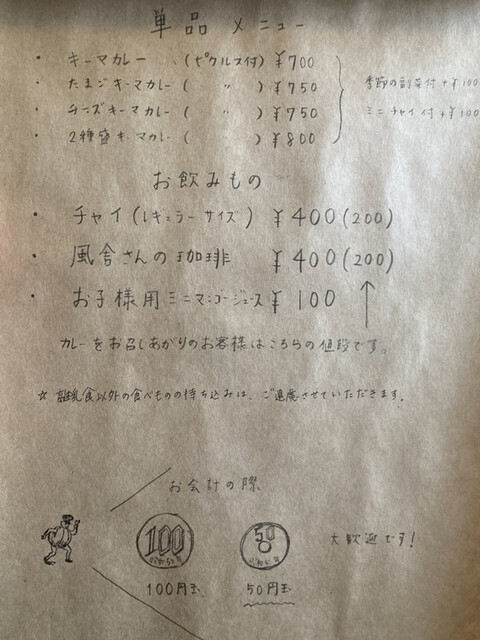 単品 メニュー
・ キーマカレー (ピクルス付) ¥700
・ たまごキーマカレー ( 〃 ) ¥750
・ チーズキーマカレー ( 〃 ) ¥750
・ 2種盛キーマカレー ( 〃 ) ¥800
季節の副菜付+¥100
ミニチャイ付+¥100
お飲みもの
・ チャイ(レギュラーサイズ) ¥400(200)
・ 風舎さんの珈琲 ¥400(200)
・ お子様用ミニマンゴージュース ¥100
カレーをお召しあがりのお客様はこちらの値段です。
☆ 離乳食以外の食べものの持ち込みは、ご遠慮させていただきます。
お会計の際
100
50
大歓迎です!
100円玉
50円玉